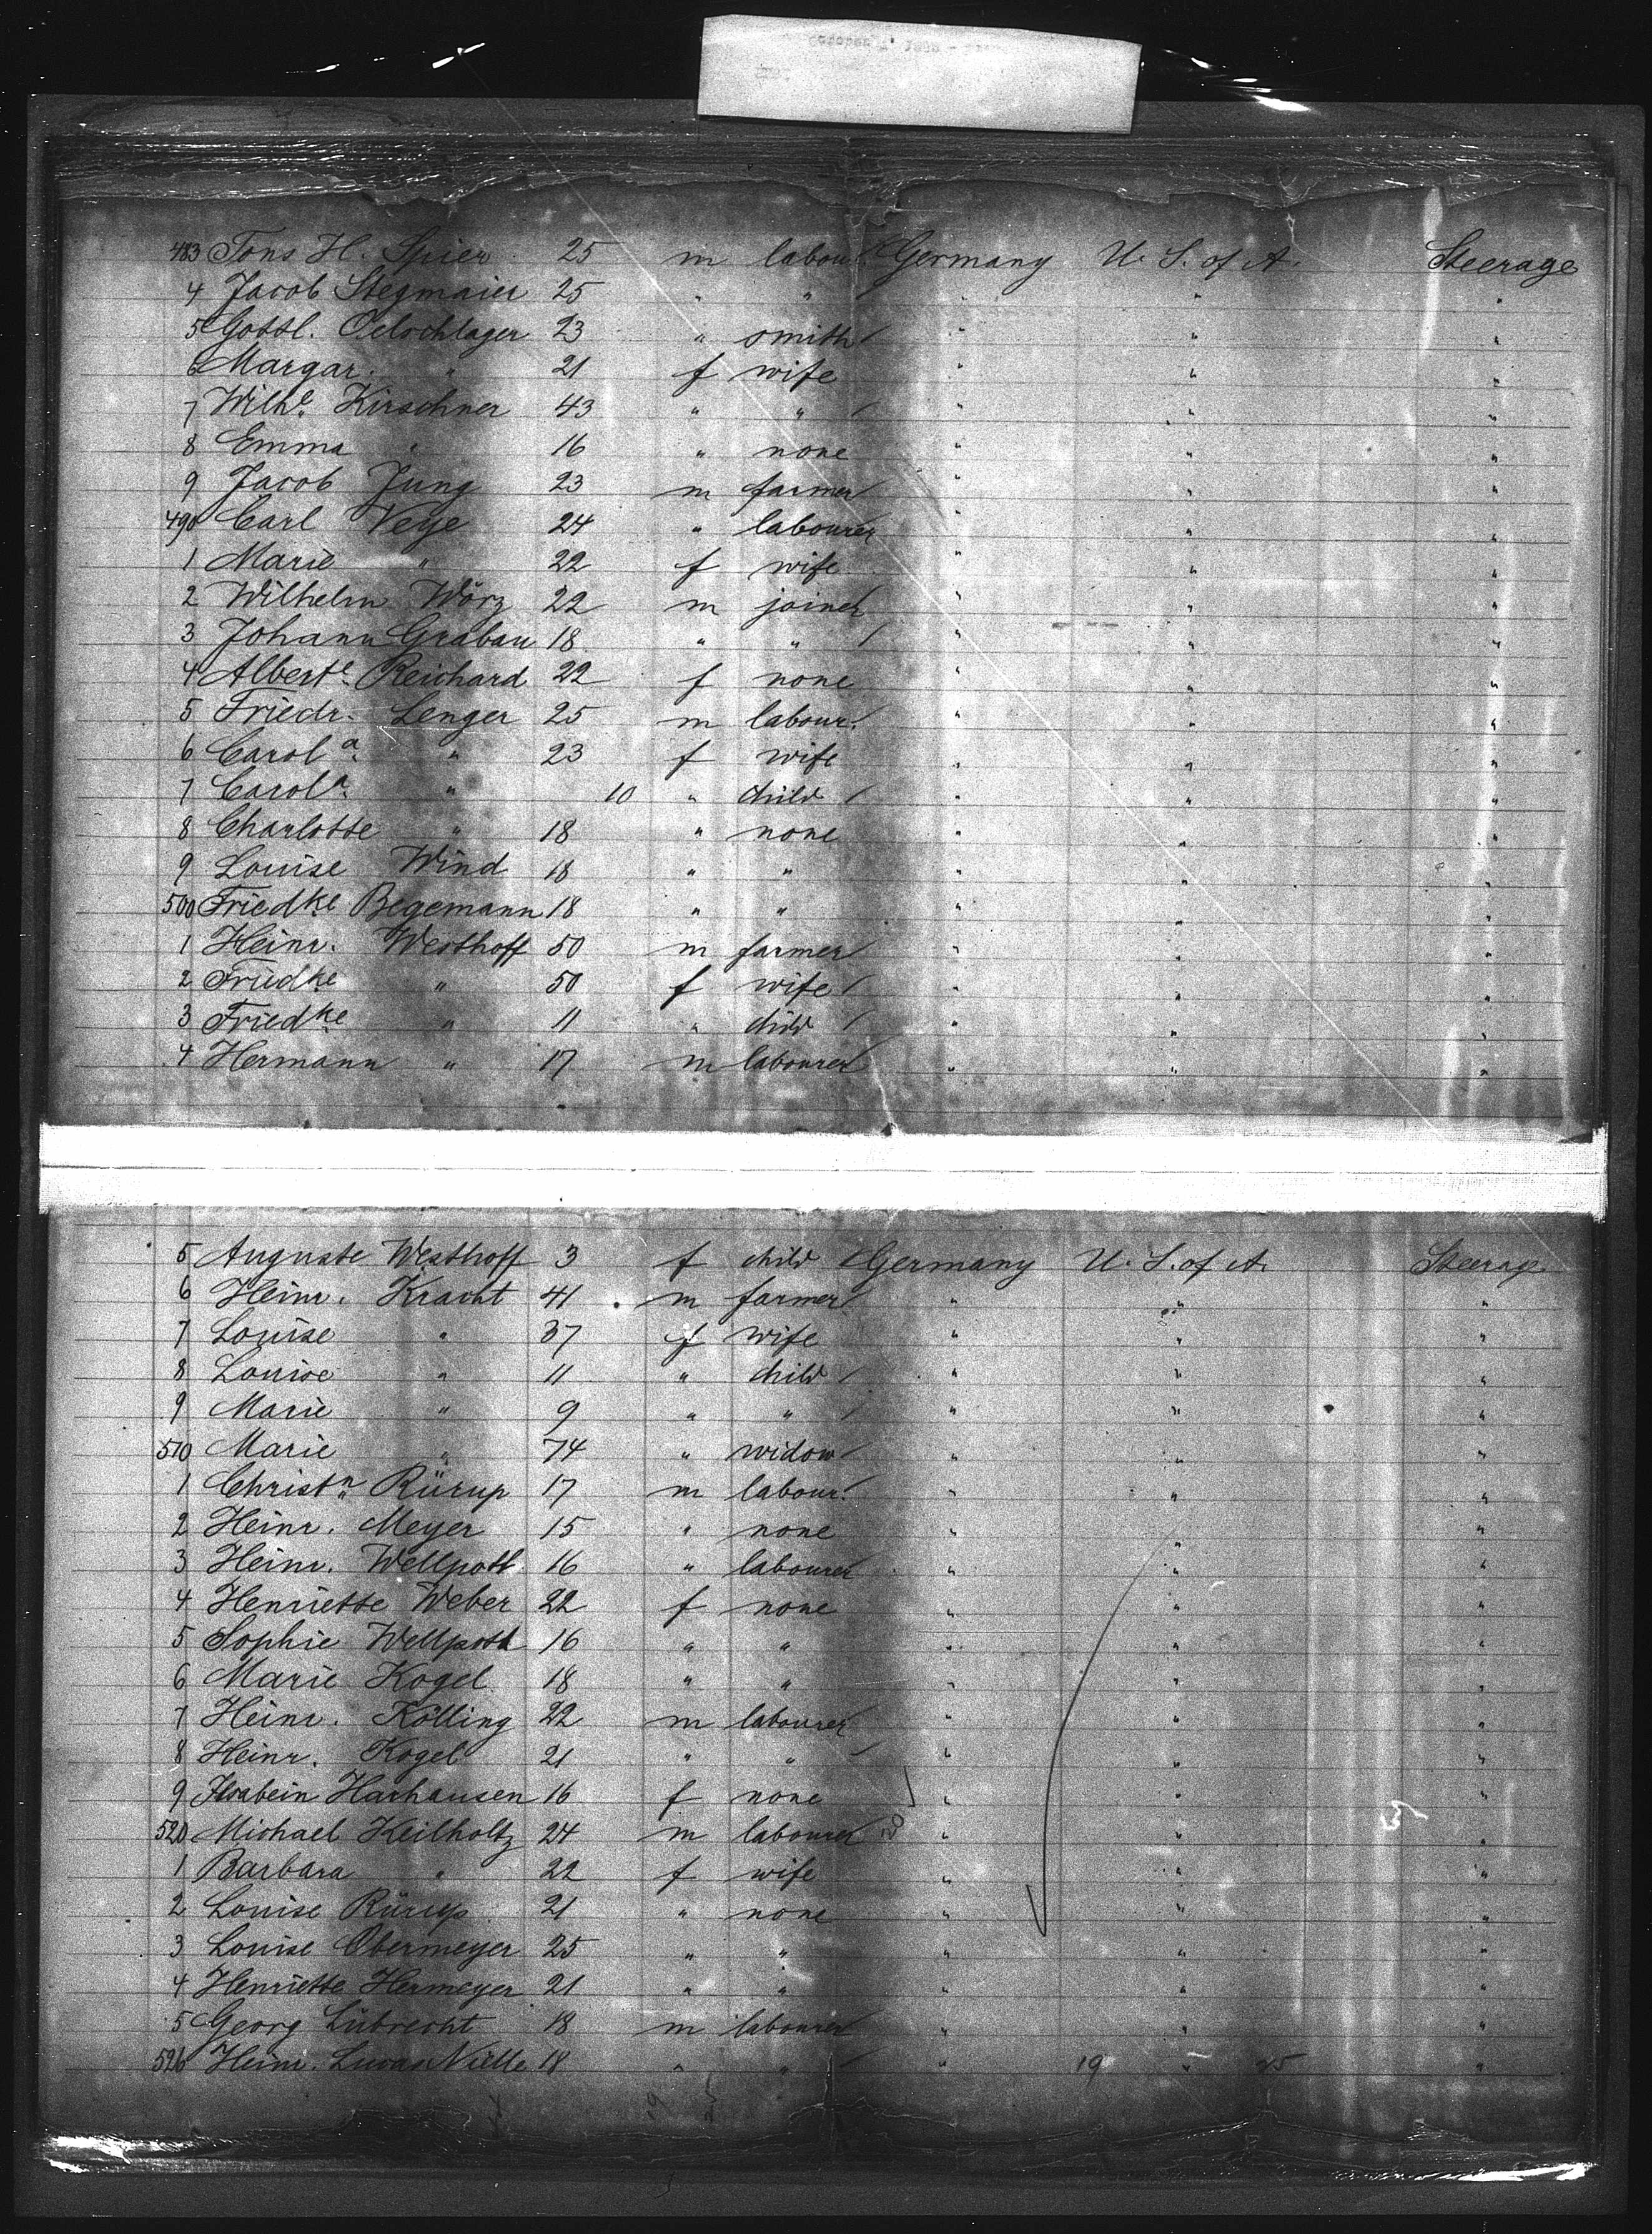 483 Tons H. Spier 25 m labour. Germany U. S. of A. Steerage
4 Jacob Stegmaier 25 " " " " "
5 Gottl. Oelschlager 23 " smith " " "
6 Margar. " 21 f wife " " "
7 Wilhe. Kirschner 43 " " " " "
8 Emma " 16 " none " " "
9 Jacob Jung 23 m farmer " " "
490 Carl Veye 24 " labourer " " "
1 Marie " 22 f wife " " "
2 Wilhelm Wörz 22 m joiner " " "
3 Johann Grabau 18 " " " " "
4 Alberte. Reichard 22 f none " " "
5 Friedr. Lenger 25 m labour. " " "
6 Carola. " 23 f wife " " "
7 Carola. " 10 " child " " "
8 Charlotte " 18 " none " " "
9 Louise Wind 18 " " " " "
500 Friedke Begemann 18 " " " " "
1 Heinr. Westhoff 50 m farmer " " "
2 Friedke " 50 f wife " " "
3 Friedke " 11 " child " " "
4 Hermann " 17 m labourer " " "
5 Auguste Westhoff 3 f child Germany U. S. of A. Steerage
6 Heinr. Kracht 41 m farmer " " "
7 Louise " 37 f wife " " "
8 Louise " 11 " child " " "
9 Marie " 9 " " " " "
510 Marie " 74 " widow " " "
1 Christn Rürup 17 m labour. " " "
2 Heinr. Meyer 15 " none " " "
3 Heinr. Wellpott 16 " labourer " " "
4 Henriette Weber 22 f none " " "
5 Sophie Wellpott 16 " " " " "
6 Marie Kogel 18 " " " " "
7 Heinr. Kölling 22 m labourer " " "
8 Heinr. Kogel 21 " " " " "
9 Ilsabein Harhausen 16 f none " " "
520 Michael Keilholtz 24 m labourer " " "
1 Barbara " 22 f wife " " "
2 Louise Rürup 21 " none " " "
3 Louise Obermeyer 25 " " " " "
4 Henriette Hermeyer 21 " " " " "
5 Georg Lübrecht 18 m labourer " " "
526 Heinr. Lucas Nülle 18 " " " 19 " 25 "
19 25